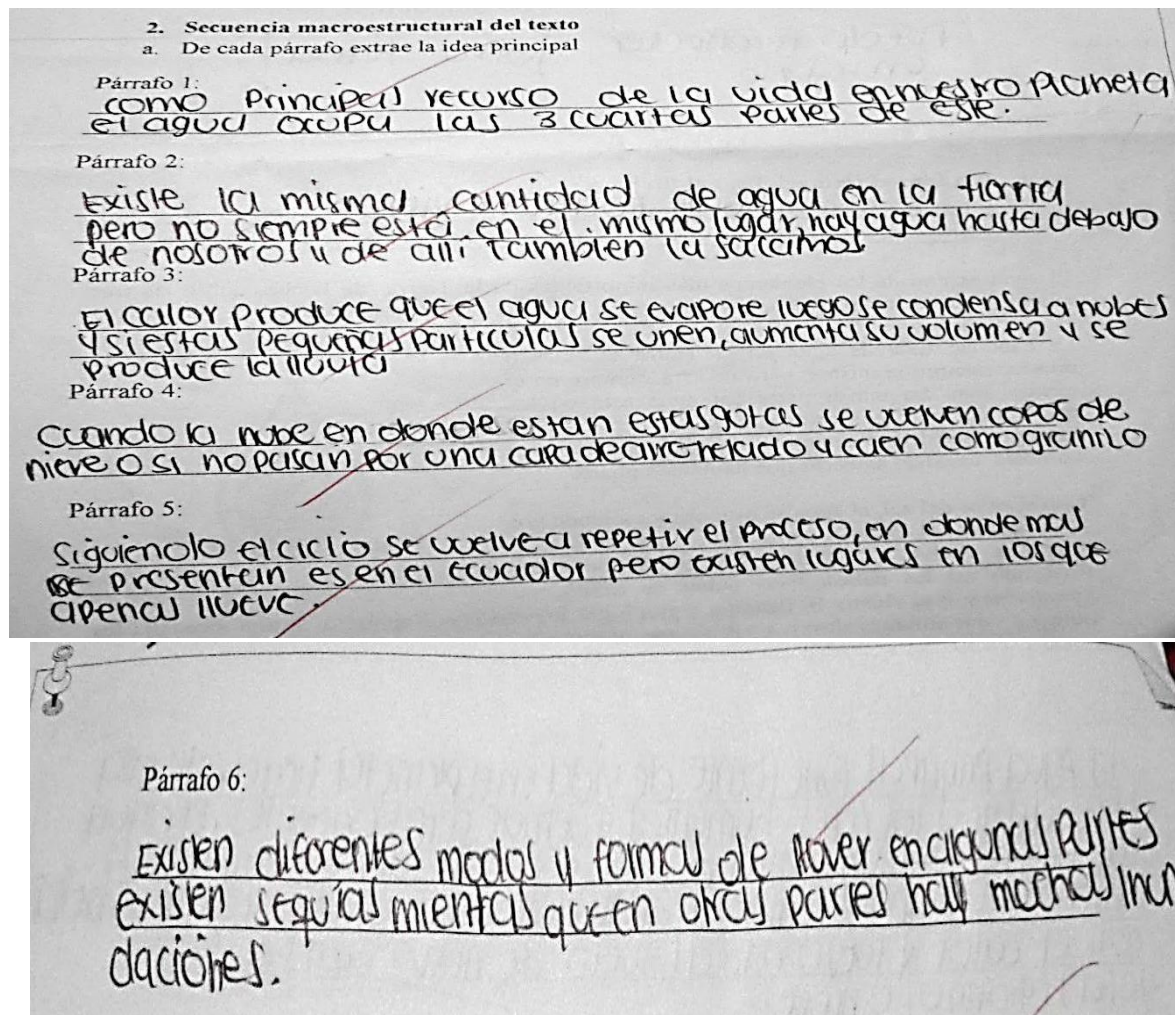 2. Secuencia macroestructural del texto
a. De cada párrafo extrae la idea principal
Párrafo 1:
como principal recurso de la vida en nuestro planeta
el agua ocupa las 3 cuartas partes de este.
Párrafo 2:
Existe la misma cantidad de agua en la tierra
pero no siempre está en el mismo lugar, hay agua hasta debajo
de nosotros y de allí tambien la sacamos
Párrafo 3:
El calor produce que el agua se evapore luego se condensa a nubes
y si estas pequeñas particulas se unen, aumenta su volumen y se
produce la lluvia
Párrafo 4:
Cuando la nube en donde estan estas gotas se vuelven copos de
nieve o si no pasan por una capa de aire helado y caen como granizo
Párrafo 5:
siguiendo el ciclo se vuelve a repetir el proceso, en donde mas
se presentan es en el ecuador pero existen lugares en los que
apenas llueve.
Párrafo 6:
Existen diferentes modos y formas de llover en algunas partes
existen sequías mientas que en otras partes hay mochas inun
daciones.